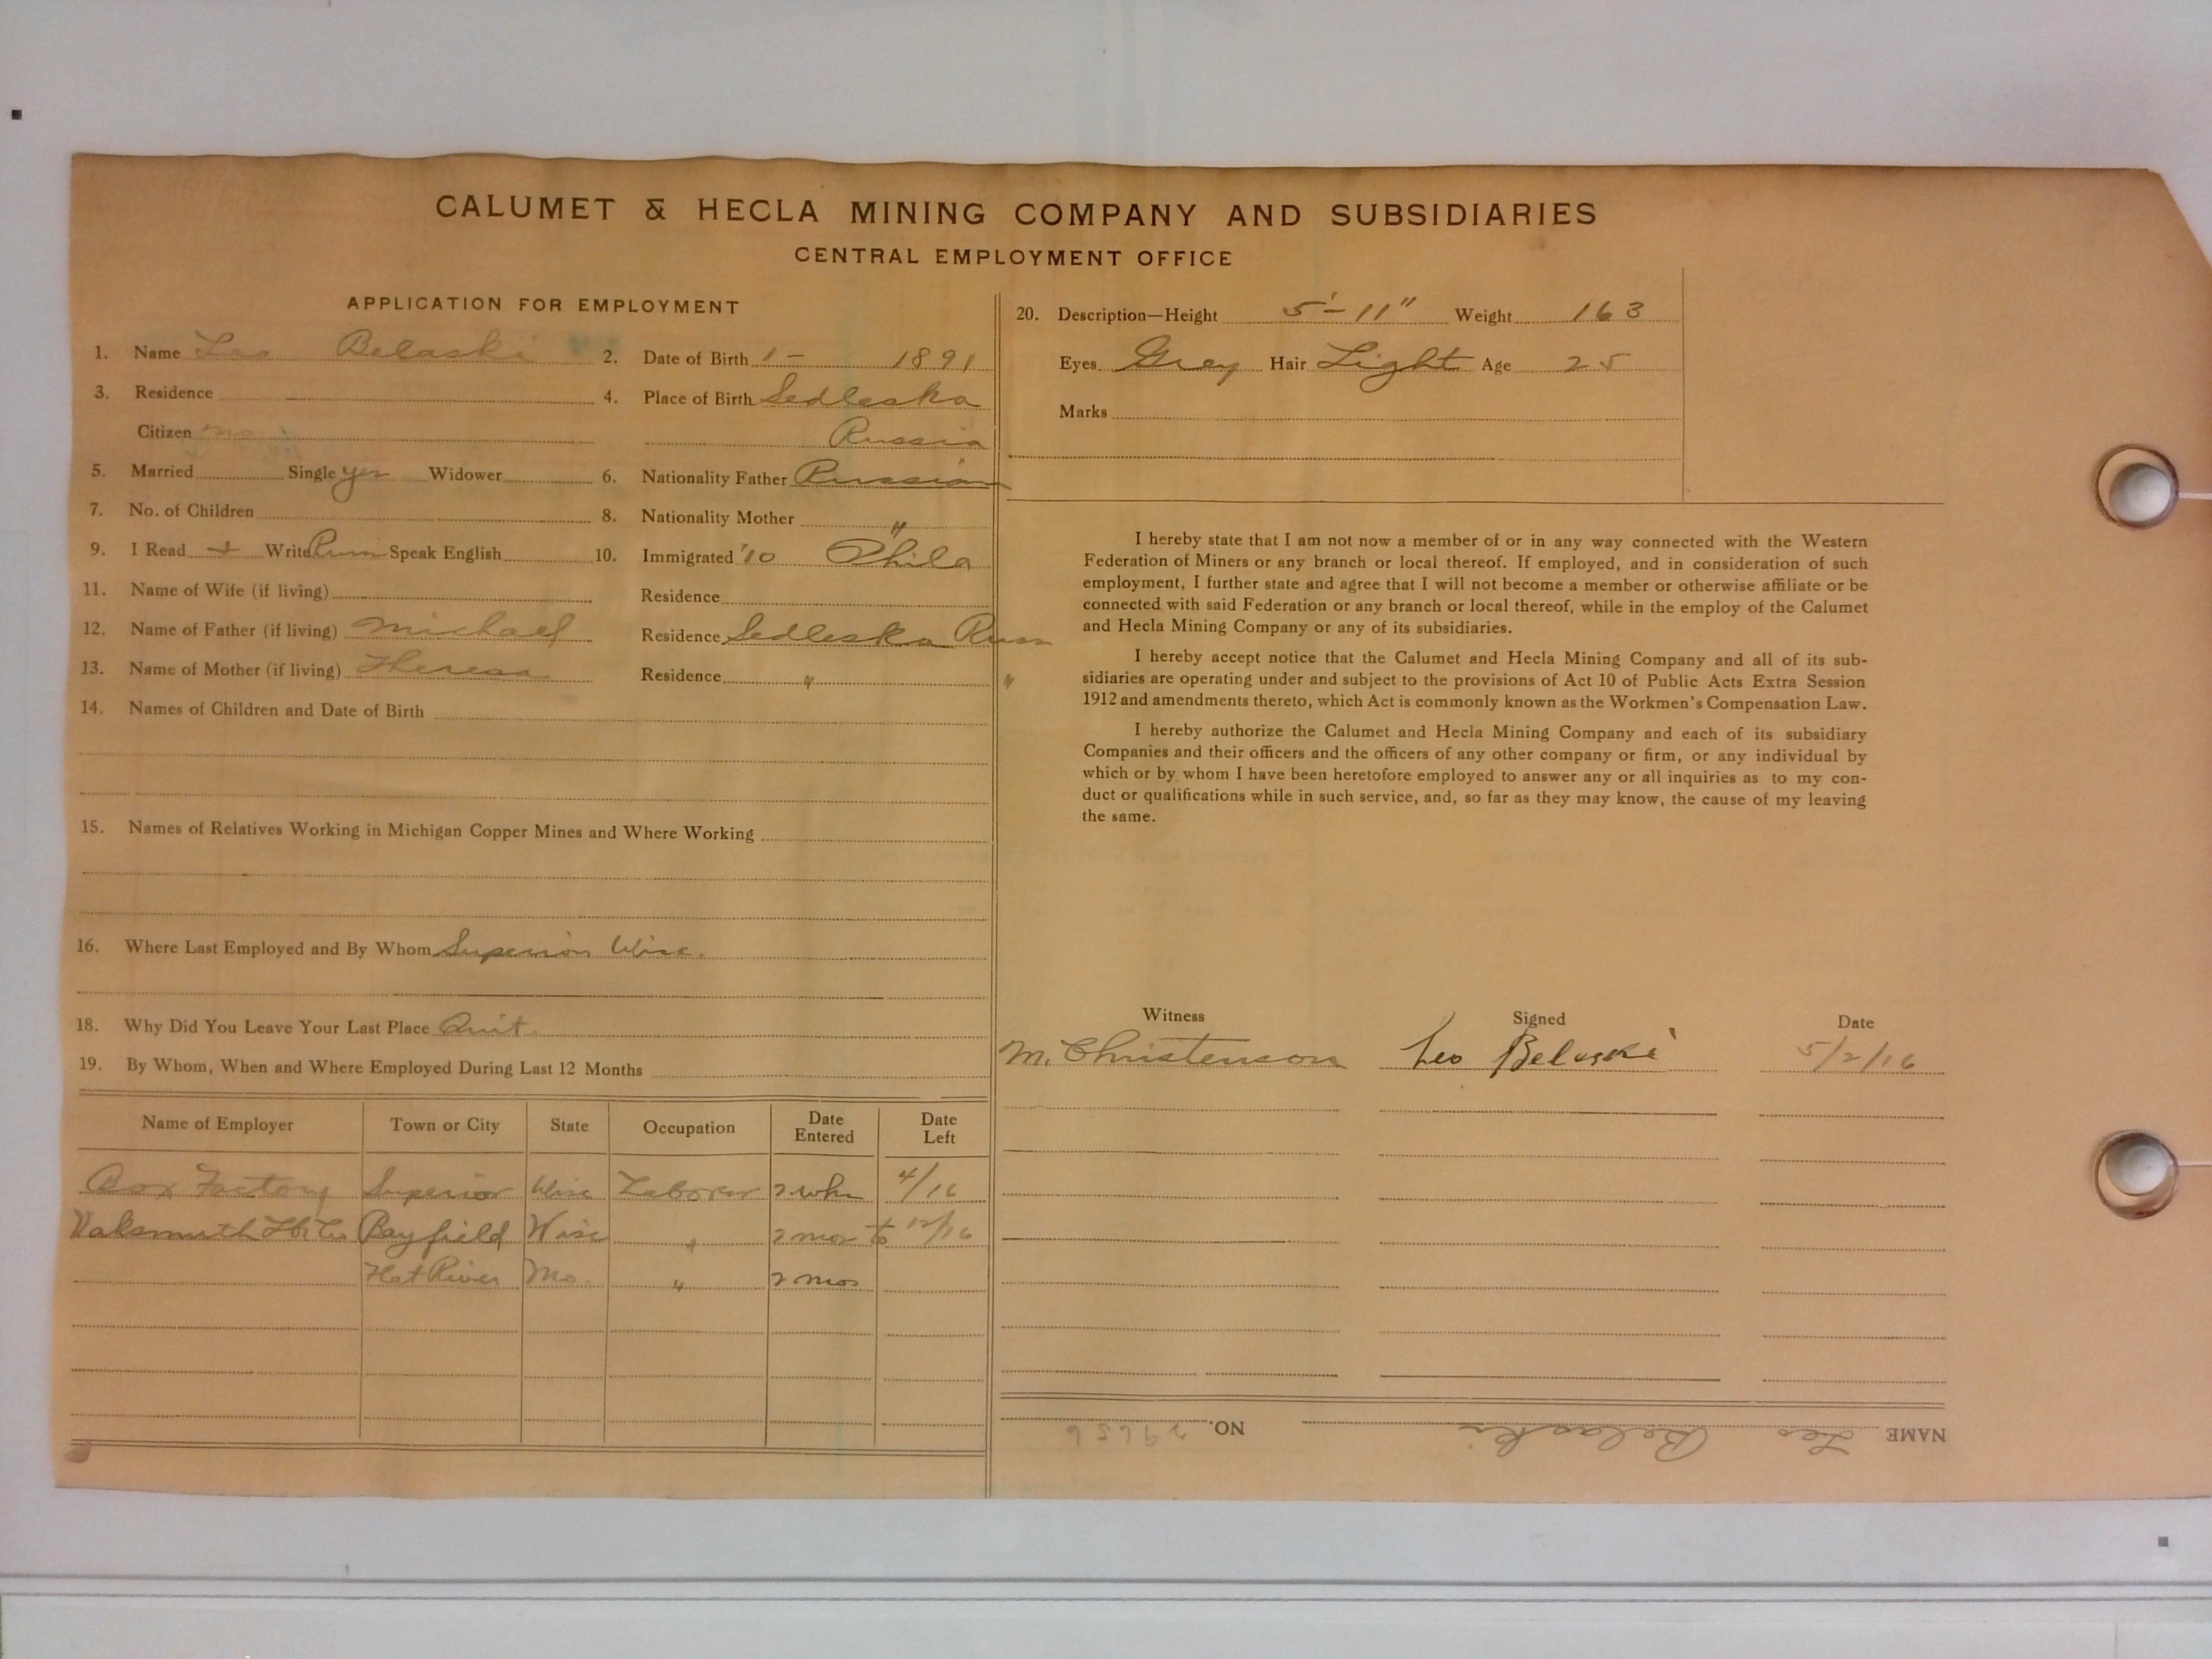 CALUMET & HECLA MINING COMPANY AND SUBSIDIARIES
CENTRAL EMPLOYMENT OFFICE
APPLICATION FOR EMPLOYMENT
1. Name Leo Belaski 2. Date of Birth 1 – 1891
3. Residence 4. Place of Birth Sedleska
Citizen no Russia
5. Married Single yes Widower 6. Nationality Father Russian
7. No. of Children 8. Nationality Mother "
9. I Read + Write Russ Speak English 10. Immigrated '10 Phila
11. Name of Wife (if living) Residence
12. Name of Father (if living) Michael Residence Sedleska Russ
13. Name of Mother (if living) Theresa Residence " "
14. Names of Children and Date of Birth
15. Names of Relatives Working in Michigan Copper Mines and Where Working
16. Where Last Employed and By Whom Superior Wisc.
18. Why Did You Leave Your Last Place Quit.
19. By Whom, When and Where Employed During Last 12 Months
Name of Employer Town or City State Occupation Date Entered Date Left
Box Factory Superior Wisc Laborer 2 wks 4/16
Bayfield Wisc " 2 mos to 12/16
Flat River Mo. " 2 mos
20. Description—Height 5'–11" Weight 163
Eyes Grey Hair Light Age 25
Marks
I hereby state that I am not now a member of or in any way connected with the Western
Federation of Miners or any branch or local thereof. If employed, and in consideration of such
employment, I further state and agree that I will not become a member or otherwise affiliate or be
connected with said Federation or any branch or local thereof, while in the employ of the Calumet
and Hecla Mining Company or any of its subsidiaries.
I hereby accept notice that the Calumet and Hecla Mining Company and all of its sub-
sidiaries are operating under and subject to the provisions of Act 10 of Public Acts Extra Session
1912 and amendments thereto, which Act is commonly known as the Workmen's Compensation Law.
I hereby authorize the Calumet and Hecla Mining Company and each of its subsidiary
Companies and their officers and the officers of any other company or firm, or any individual by
which or by whom I have been heretofore employed to answer any or all inquiries as to my con-
duct or qualifications while in such service, and, so far as they may know, the cause of my leaving
the same.
Witness Signed Date
M. Christenson Leo Belaski 5/2/16
NAME Leo Belaski NO. 29656